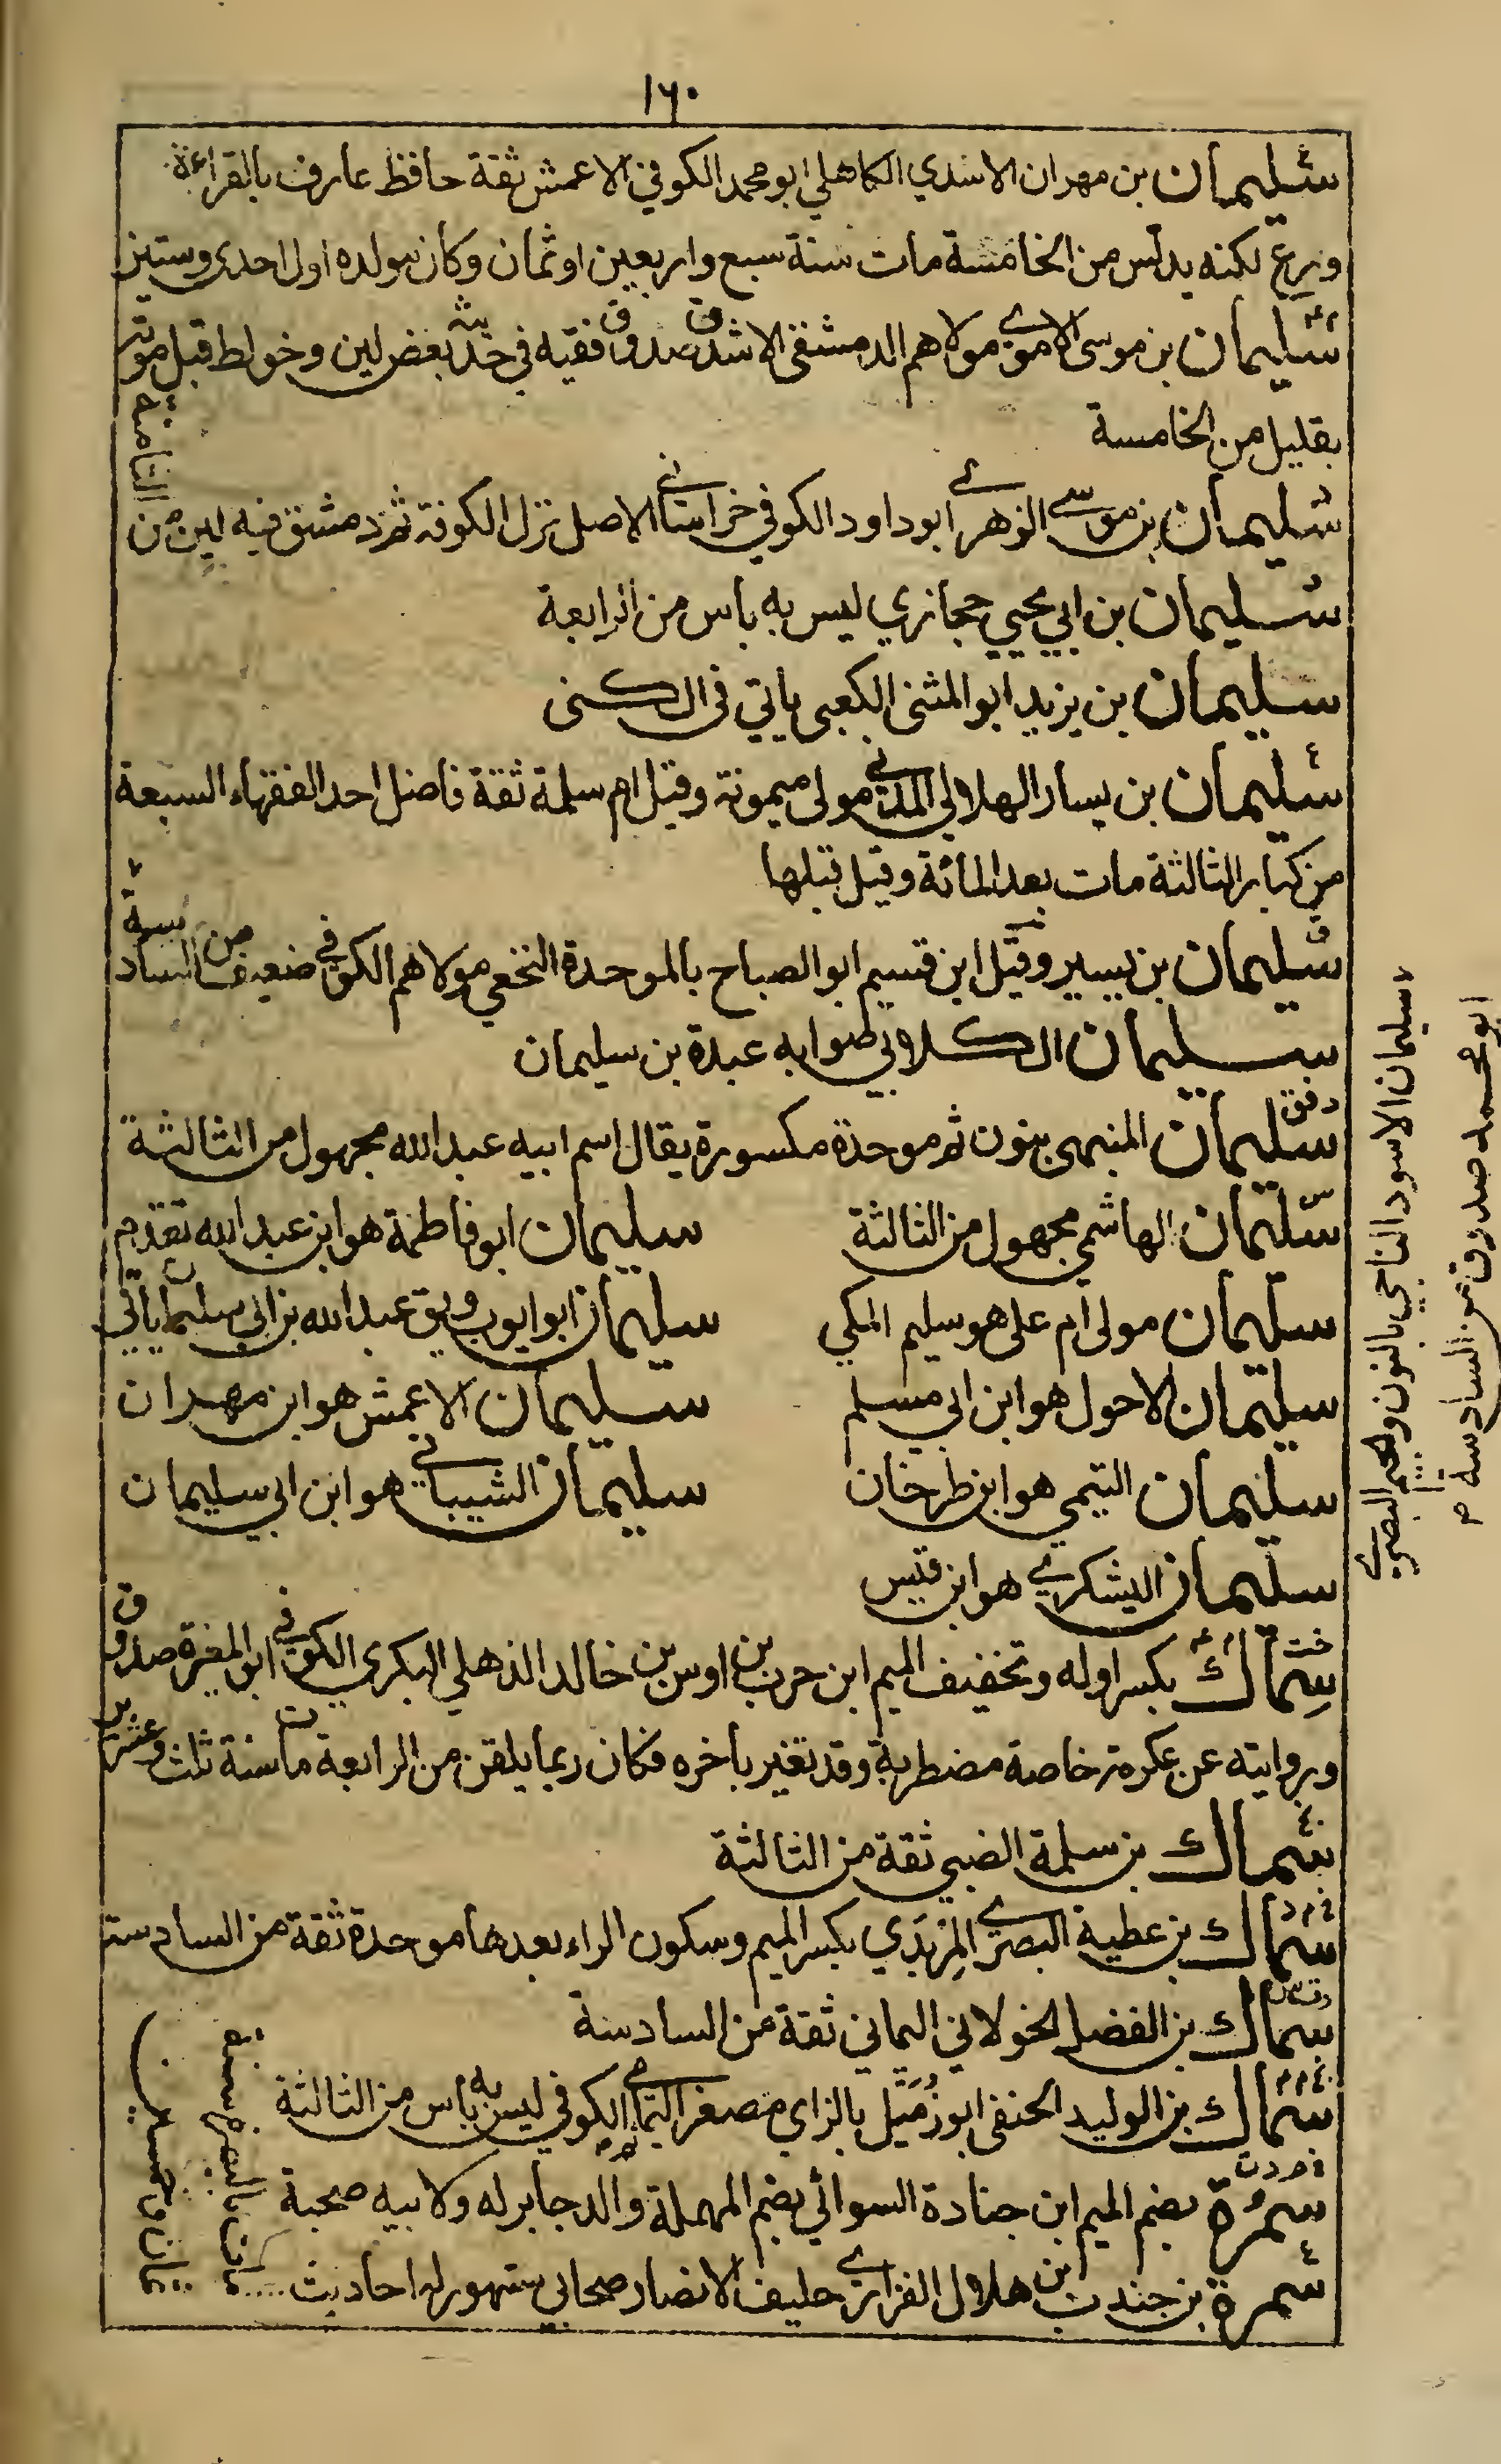 ١٦٠
سليمان بن مهران الاسدي الكاهلي ابو محمد الكوفي الاعمش ثقة حافظ عارف بالقراءة
ورع لكنه يدلس من الخامسة مات سنة سبع واربعين او ثمان وكان مولده اول احدى وستين
سليمان بن موسى الاموي مولاهم الدمشقي الاشدق صدوق فقيه في حديثه بعض لين وخولط قبل موته
بقليل من الخامسة
سليمان بن موسى الزهري ابو داود الكوفي خراساني الاصل نزل الكوفة ثم دمشق فيه لين من
الثامنة
سليمان بن ابي يحيي حجازي ليس به باس من الرابعة
سليمان بن يزيد ابو المثنى الكعبي ياتي في الكنى
سليمان بن يسار الهلالي المدني مولى ميمونة وقيل ام سلمة ثقة فاضل احد الفقهاء السبعة
من كبار الثالثة مات بعد المائة وقيل قبلها
سليمان بن يسير وقيل ابن قسيم ابو الصباح بالموحدة النخعي مولاهم الكوفي ضعيف من السادسة
سليمان الكلابي صوابه عبدة بن سليمان
دفق
سليمان المنبهى بنون ثم موحدة مكسورة يقال اسم ابيه عبد الله مجهول من الثالثة
سليمان الهاشمي مجهول من الثالثة سليمان ابو فاطمة هو ابن عبد الله تقدم
سليمان مولى ام على هو سليم المكي سليمان ابو ايوب ويق عبد الله بن ابي سليمان ياتي
سليمان الاحول هو ابن ابي مسلم سليمان الاعمش هو ابن مهران
سليمان التيمي هو ابن طرخان سليمان الشيباني هو ابن ابي سليمان
سليمان اليشكري هو ابن قيس
سماك بكسر اوله وتخفيف الميم ابن حرب بن اوس بن خالد الذهلي البكري الكوفي ابو المغيرة صدوق
وروايته عن عكرمة خاصة مضطربة وقد تغير باخره فكان ربما يلقن من الرابعة مات سنة ثلث وعشرين
سماك بن سلمة الضبي ثقة من الثالثة
سماك بن عطية البصري المِربَدي بكسر الميم وسكون الراء بعدها موحدة ثقة من السادسة
سماك بن الفضل الخولاني اليماني ثقة من السادسة
سماك بن الوليد الحنفي ابو زُمَيل بالزاي مصغر اليمامي الكوفي ليس به باس من الثالثة
سمُرة بضم الميم ابن جنادة السوائي بضم المهملة والد جابر له ولابيه صحبة
سمرة بن جندب بن هلال الفزاري حليف الانصار صحابي مشهور له احاديث
مات بالبصرة سنة
ثمان وخمسين
سليمان الاسود الناجي بالنون والجيم البصري
ابو محمد صدوق من السادسة م